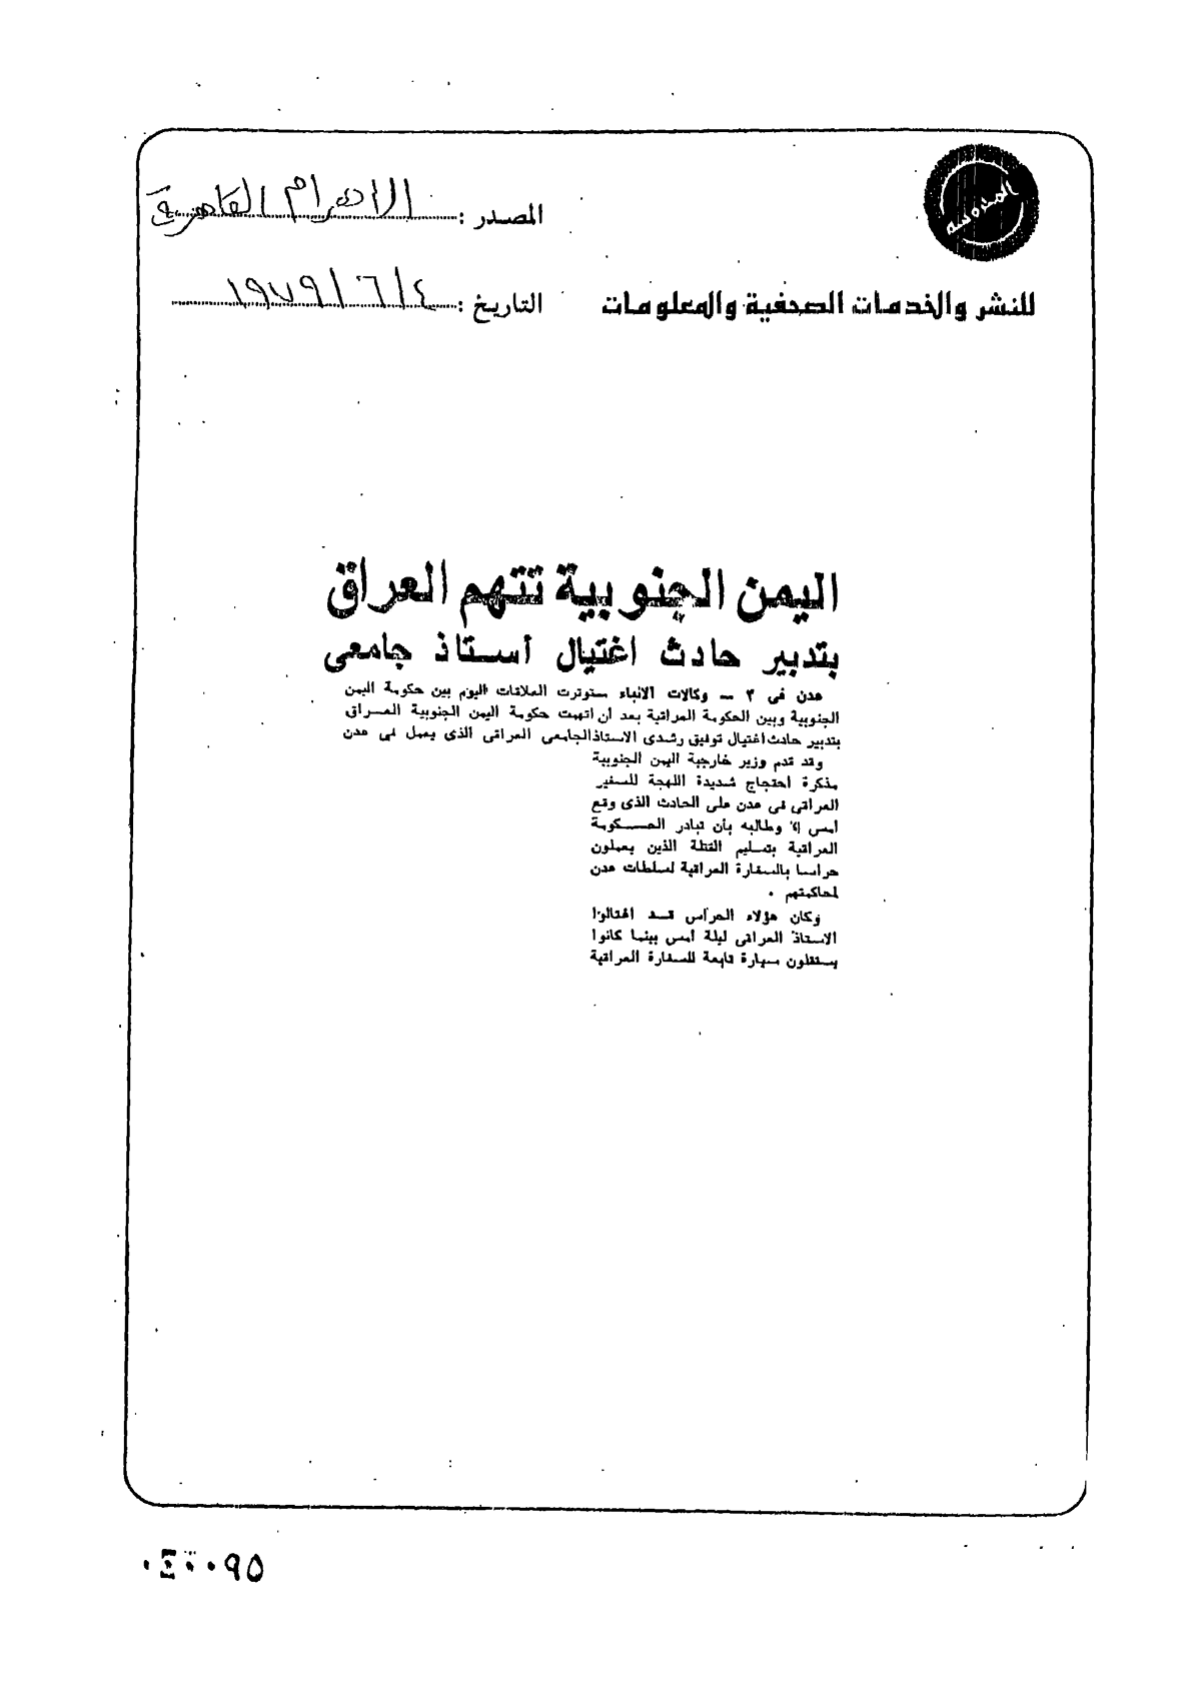 المصدر : الاهرام القاهرية
للنشر والخدمات الصحفية والمعلومات
التاريخ : ١٩٧٩/٦/٤
اليمن الجنوبية تتهم العراق
بتدبير حادث اغتيال أستاذ جامعى
عدن فى ٣ — وكالات الانباء ـ توترت العلاقات اليوم بين حكومة اليمن
الجنوبية وبين الحكومة العراقية بعد أن اتهمت حكومة اليمن الجنوبية العـراق
بتدبير حادث اغتيال توفيق رشدى الاستاذ الجامعى العراقى الذى يعمل فى عدن
وقد قدم وزير خارجية اليمن الجنوبية
مذكرة احتجاج شديدة اللهجة للسفير
العراقى فى عدن على الحادث الذى وقع
أمس وطالبه بأن تبادر الحـكومة
العراقية بتسليم القتلة الذين يعملون
حراسا بالسفارة العراقية لسلطات عدن
لمحاكمتهم .
وكان هؤلاء الحراس قـد اغتالوا
الاستاذ العراقى ليلة أمس بينما كانوا
يستقلون سيارة تابعة للسفارة العراقية